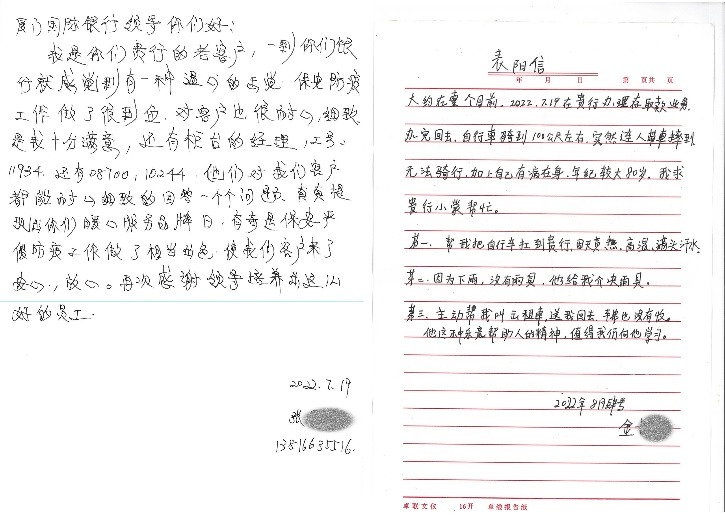 厦门国际银行领导你们好：
我是你们贵行的老客户，一到你们银
行就感觉到有一种温心的感觉，保安防疫
工作做了很到位，对客户也很耐心，细致
是我十分满意，还有柜台的经理，工号：
11934，还有08700，10244，他们对我们客户
都能耐心细致的回答一个个问题，真负提
现出你们暖心服务品牌日，有奇是保安严
做防疫工作做了相当出色，使我们客户来了
安心，放心。再次感谢领导培养出这么
好的员工。
2022.7.19
张
13816635516.
表阳信
年 月 日 第 页共 页
大约在壹个月前，2022，7.19在贵行办理存取款业务，
办完回去，自行车骑到100公尺左右，突然连人带車摔到
无法骑行，加上自己有病在身，年纪较大80岁，我求
贵行小裴帮忙。
第一、帮我把自行车扛到贵行，因天炎热，高温，满头汗水
第二、因为下雨，没有雨具，他给我个决雨具。
第三、主动帮我叫出租車，送我回去，手弟也没有收。
他这种乐意帮助人的精神，值得我们向他学习。
2022年8月肆号
金
卓联文仪 16开 单线报告纸